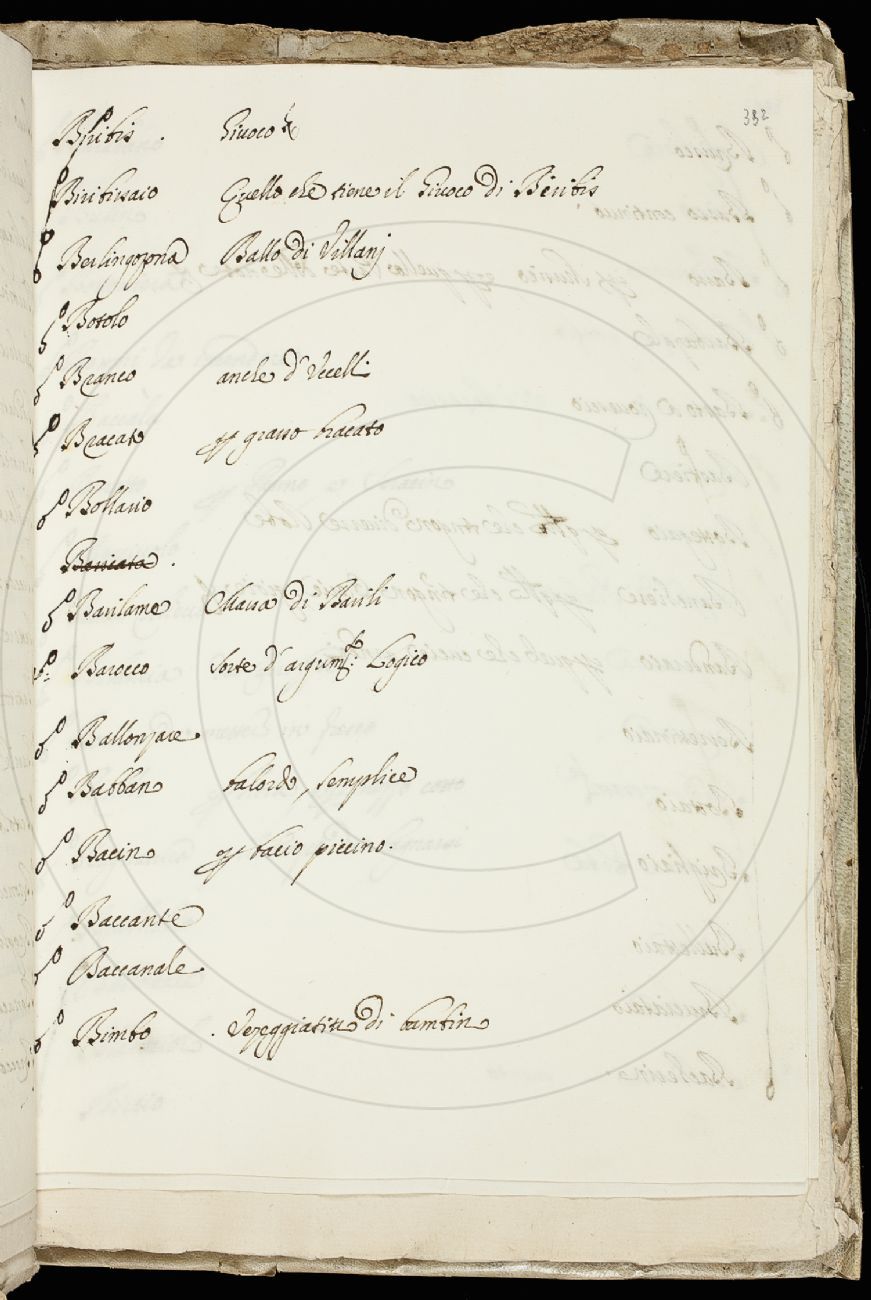 332
Biribis . Giuoco
Biribissaio Quello che tiene il Giuoco di Biribis
Berlingozona Ballo di Villanj
Botolo
Branco anche d'Vccelli
Bracato grasso bracato
Bollario
Barilame Massa di Barili
Barocco sorte d'argum.to Logico
Ballonzare
Babbano balordo, semplice
Bacino bacio piccino.
Baccante
Baccanale
Bimbo . Vezeggiativo di bambino